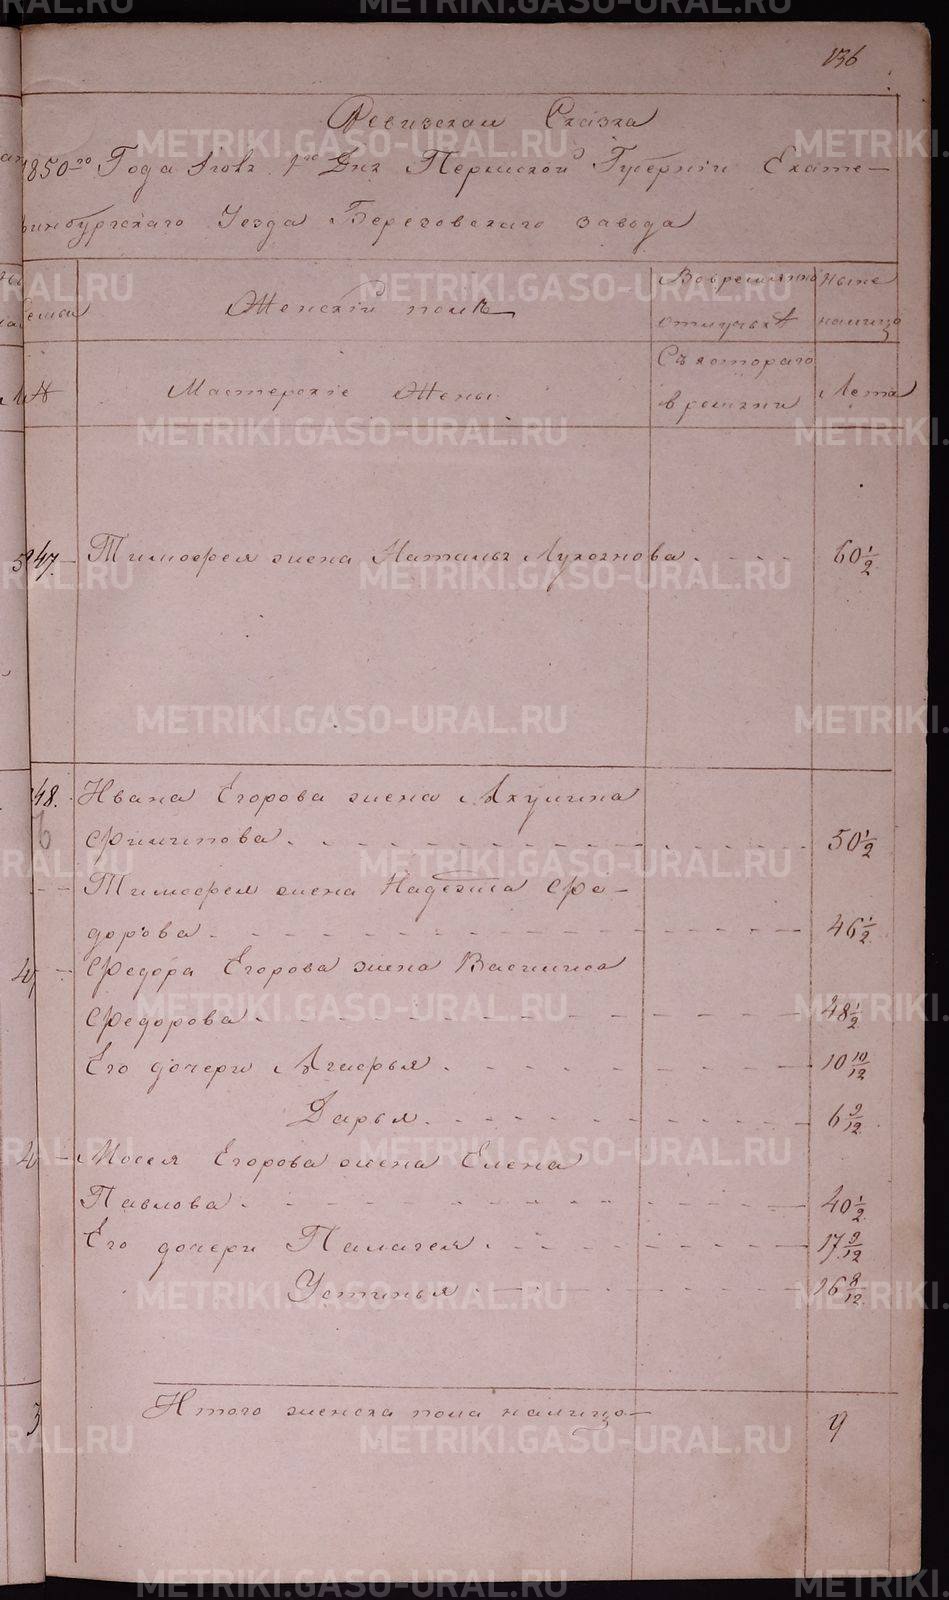 136
Ревизская Сказка
1850го Года Июля 1го Дня Пермской Губернии Екате-
ринбургскаго Уезда Березовскаго завода
Женский полъ
Во временной отлучке
ныне налицо
№
Мастерские Жены
Съ котораго времяни
Лета
47. Тимофея жена Наталья Лукоянова 60 1/2
48. Ивана Егорова жена Акулина
Филипова 50 1/2
Тимофея жена Надежда Фе-
дорова 46 1/2
Федора Егорова жена Василиса
Федорова 48 1/2
Его дочери Агафья 10 10/12
Дарья 6 9/12
Мосея Егорова жена Елена
Павлова 40 1/2
Его дочери Палагея 17 9/12
Устинья 16 8/12
Итого женска пола налицо 9
METRIKI.GASO-URAL.RU